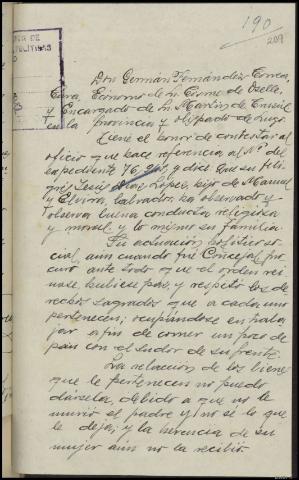 190
209
Don Germán Fernández Correa,
Cura, Ecónomo de S. Cosme de
y Encargado de S. Martín de
en la Provincia y Obispado de Lugo.
Tiene el honor de contestar al
oficio que hace referencia al Nº del
expediente y dice: Que su feli-
grés Jesús Díaz López, hijo de Manuel
y Elvira, labrador, ha observado y
observa buena conducta religiosa
y moral y lo mismo su familia.
Su actuación político so-
cial, aun cuando fué Concejal, pro-
curó ante todo que el orden rei-
nase, hubiese paz, y respetó los de-
rechos sagrados que a cada uno
pertenecen; ocupándose en traba-
jar a fin de comer un pozo de
pan con el sudor de su frente.
La relación de los bienes
que le pertenecen no puedo
dársela, debido a que no le
murió el padre y no sé lo que
le deja; y la herencia de su
mujer aún no la recibió